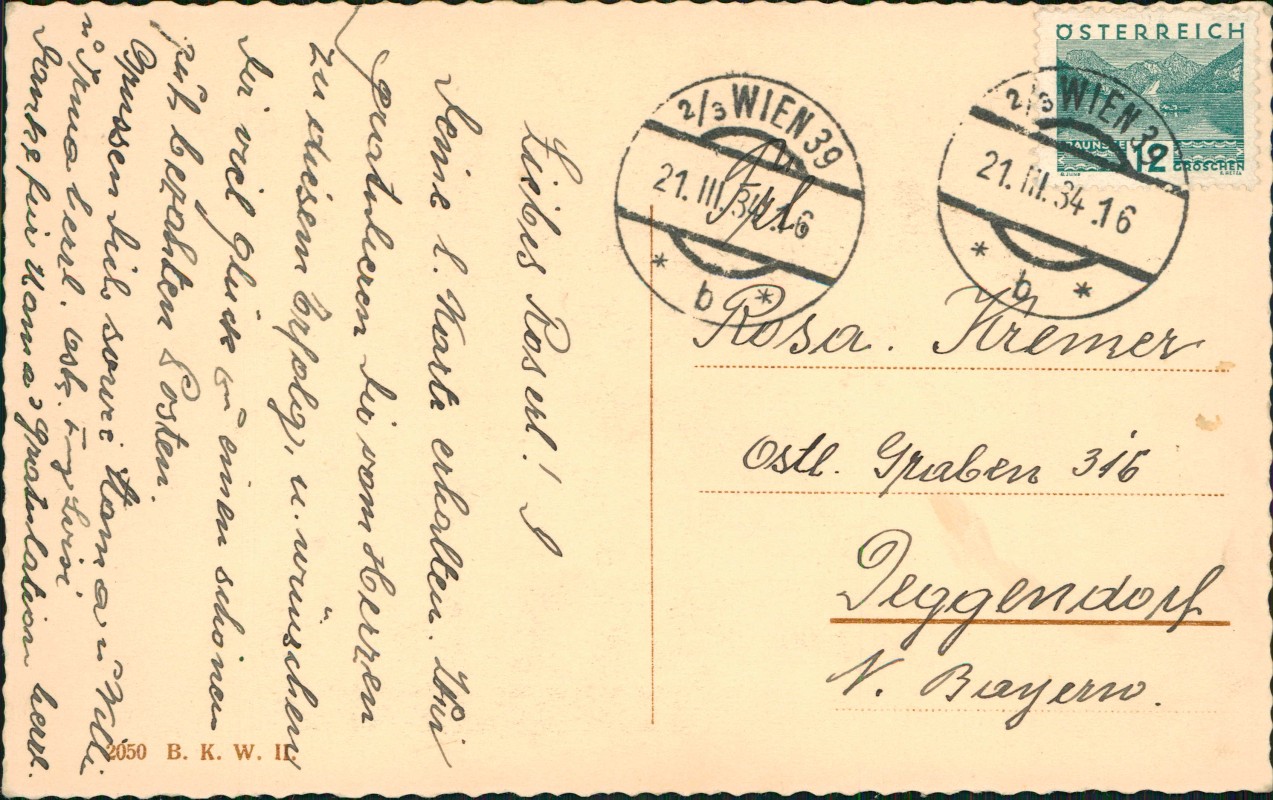 Liebes Roserl!
Deine l. Karte erhalten. Wir
gratulieren Dir vom Herzen
zu diesem Erfolg, u. wünschen
Dir viel Glück einen schönen
gut bezahlten Posten.
Grüssen Dich sowie Mama u Willi
u Oma herzl.
Danke für Mama's Gratulation herzl.
2050 B. K. W. II.
ÖSTERREICH
TRAUNSEE 12 GROSCHEN
2/3 WIEN 39
21. III. 34 .16
* b *
2/3 WIEN 39
21. III. 34 .16
* b *
Frl.
Rosa. Kremer
Östl. Graben 316
Deggendorf
N. Bayern.